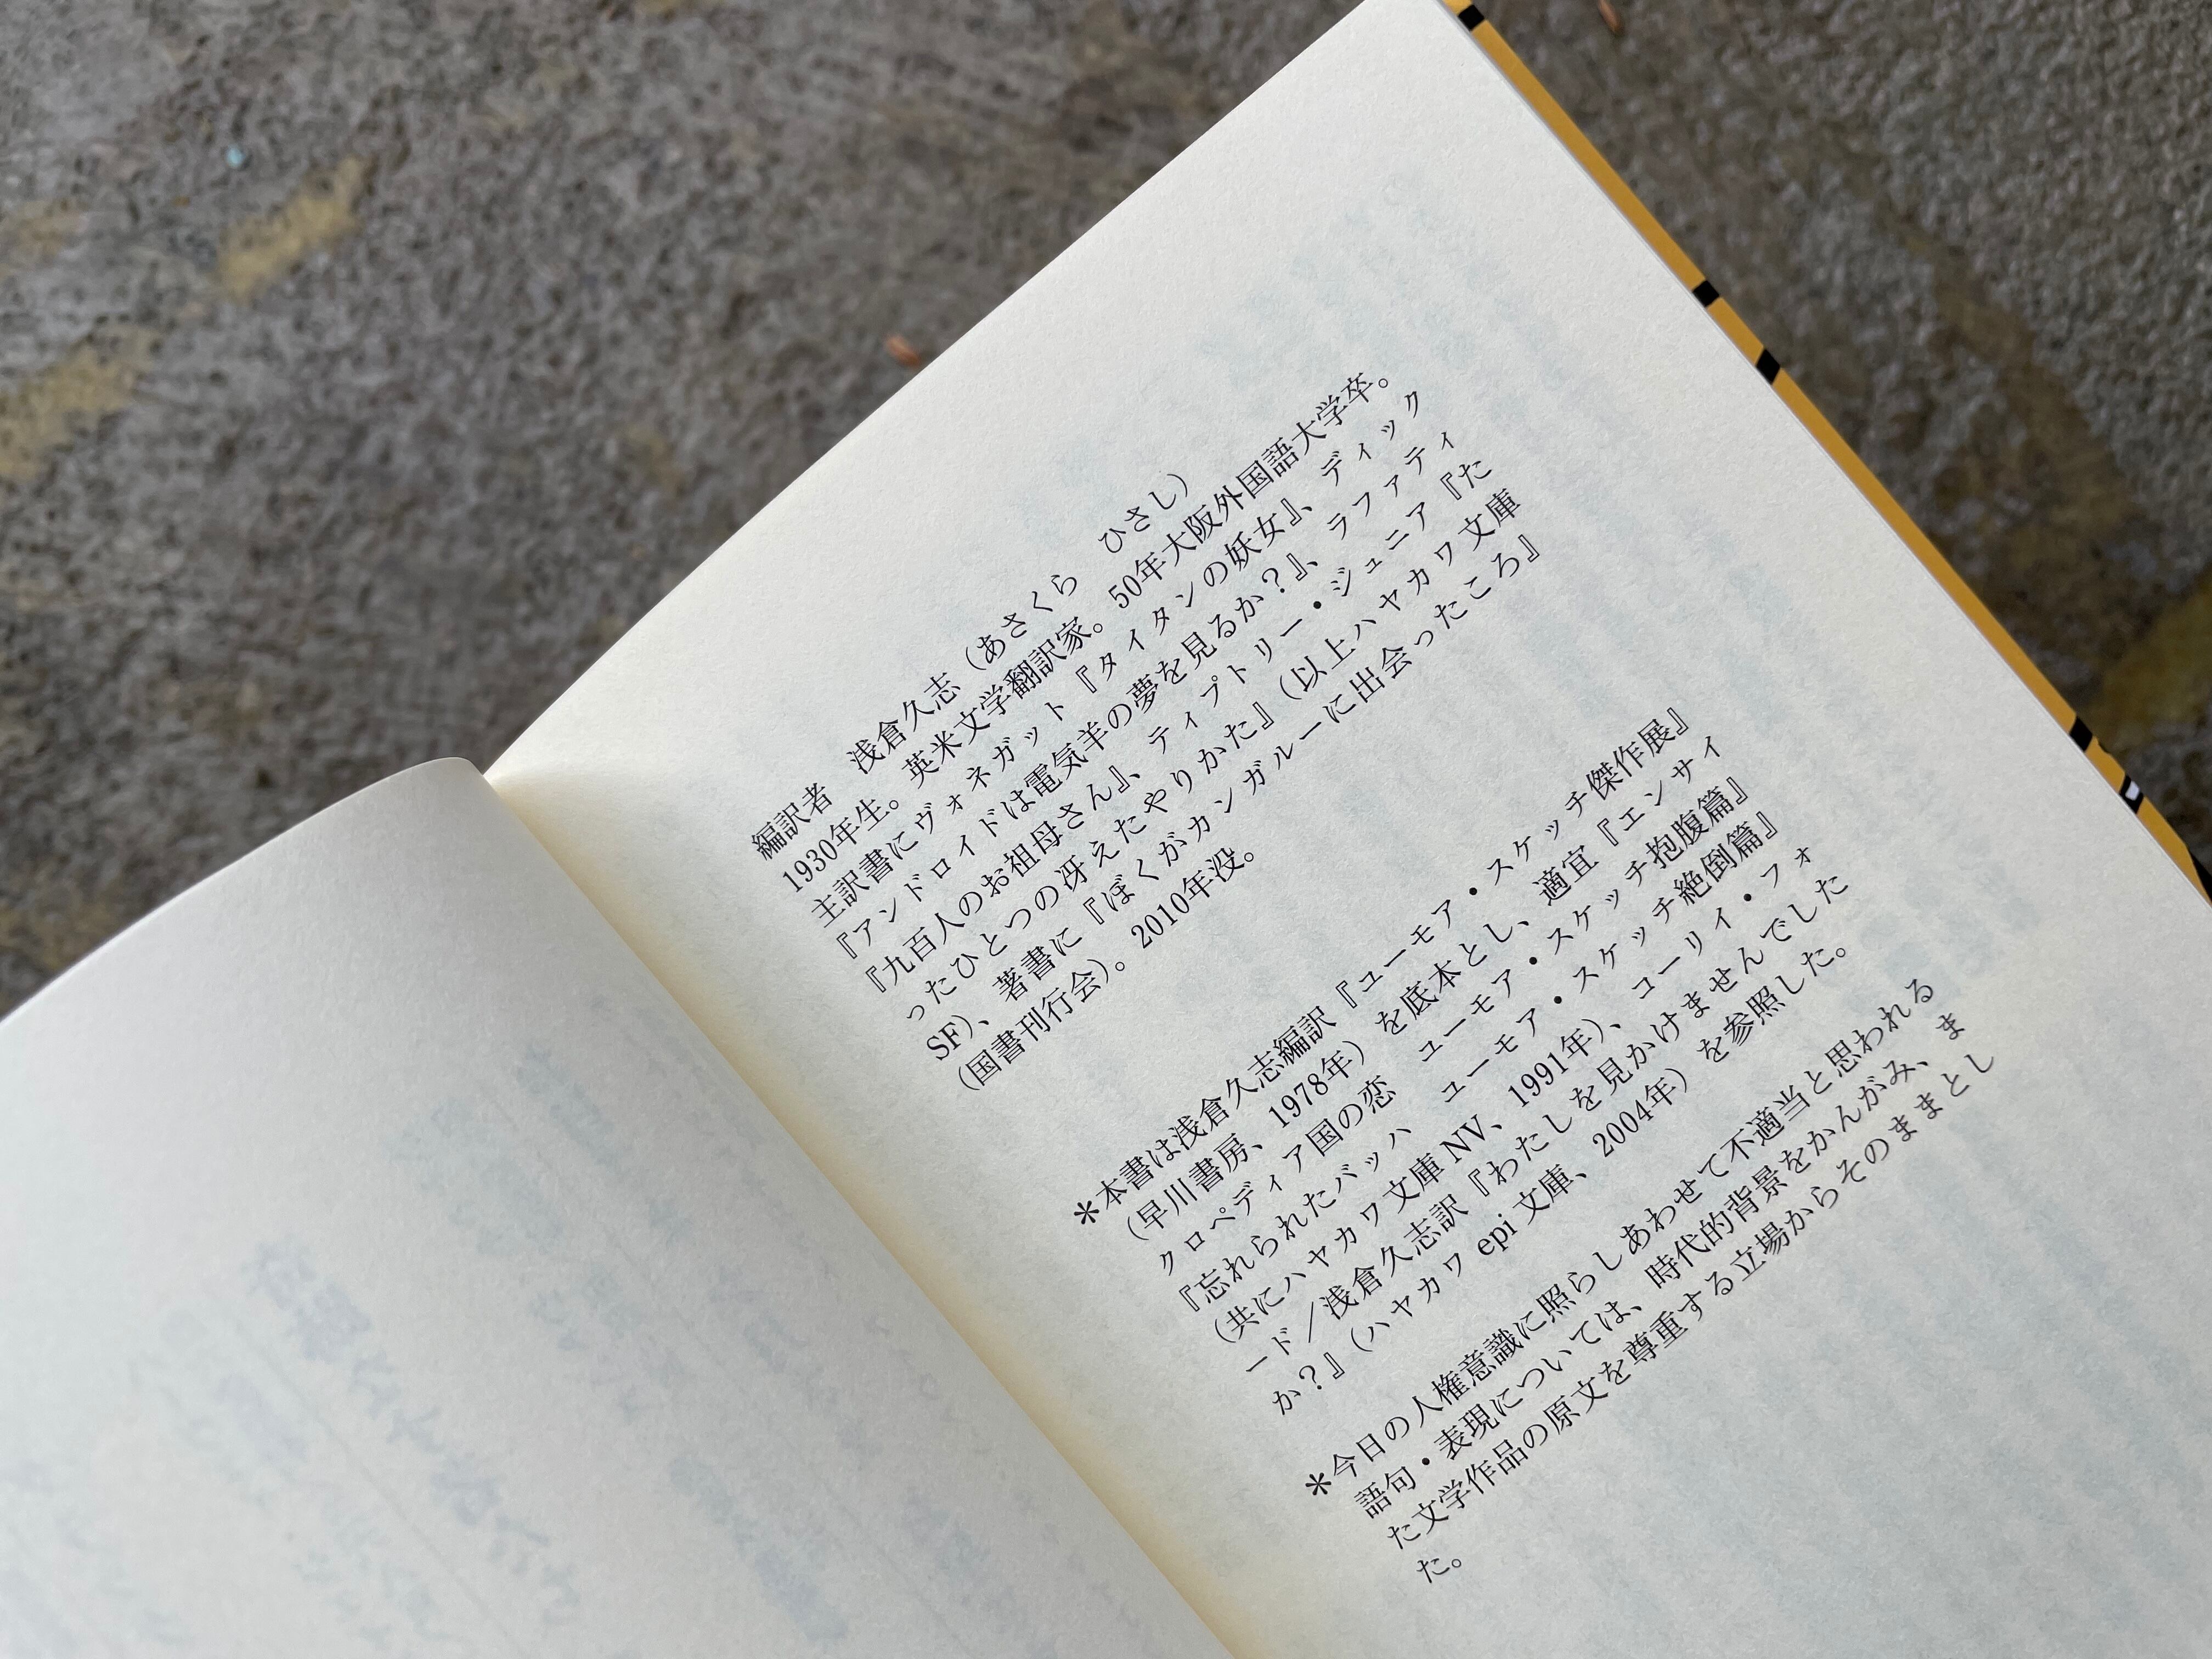 編訳者　浅倉久志（あさくら　ひさし）
1930年生。英米文学翻訳家。50年大阪外国語大学卒。
主訳書にヴォネガット『タイタンの妖女』、ディック
『アンドロイドは電気羊の夢を見るか？』、ラファティ
『九百人のお祖母さん』、ティプトリー・ジュニア『た
ったひとつの冴えたやりかた』（以上ハヤカワ文庫
SF）、著書に『ぼくがカンガルーに出会ったころ』
（国書刊行会）。2010年没。
＊本書は浅倉久志編訳『ユーモア・スケッチ傑作展』
（早川書房、1978年）を底本とし、適宜『エンサイ
クロペディア国の恋　ユーモア・スケッチ抱腹篇』
『忘れられたバッハ　ユーモア・スケッチ絶倒篇』
（共にハヤカワ文庫NV、1991年）、コーリイ・フォ
ード／浅倉久志訳『わたしを見かけませんでした
か？』（ハヤカワ epi 文庫、2004年）を参照した。
＊今日の人権意識に照らしあわせて不適当と思われる
語句・表現については、時代的背景をかんがみ、ま
た文学作品の原文を尊重する立場からそのままとし
た。